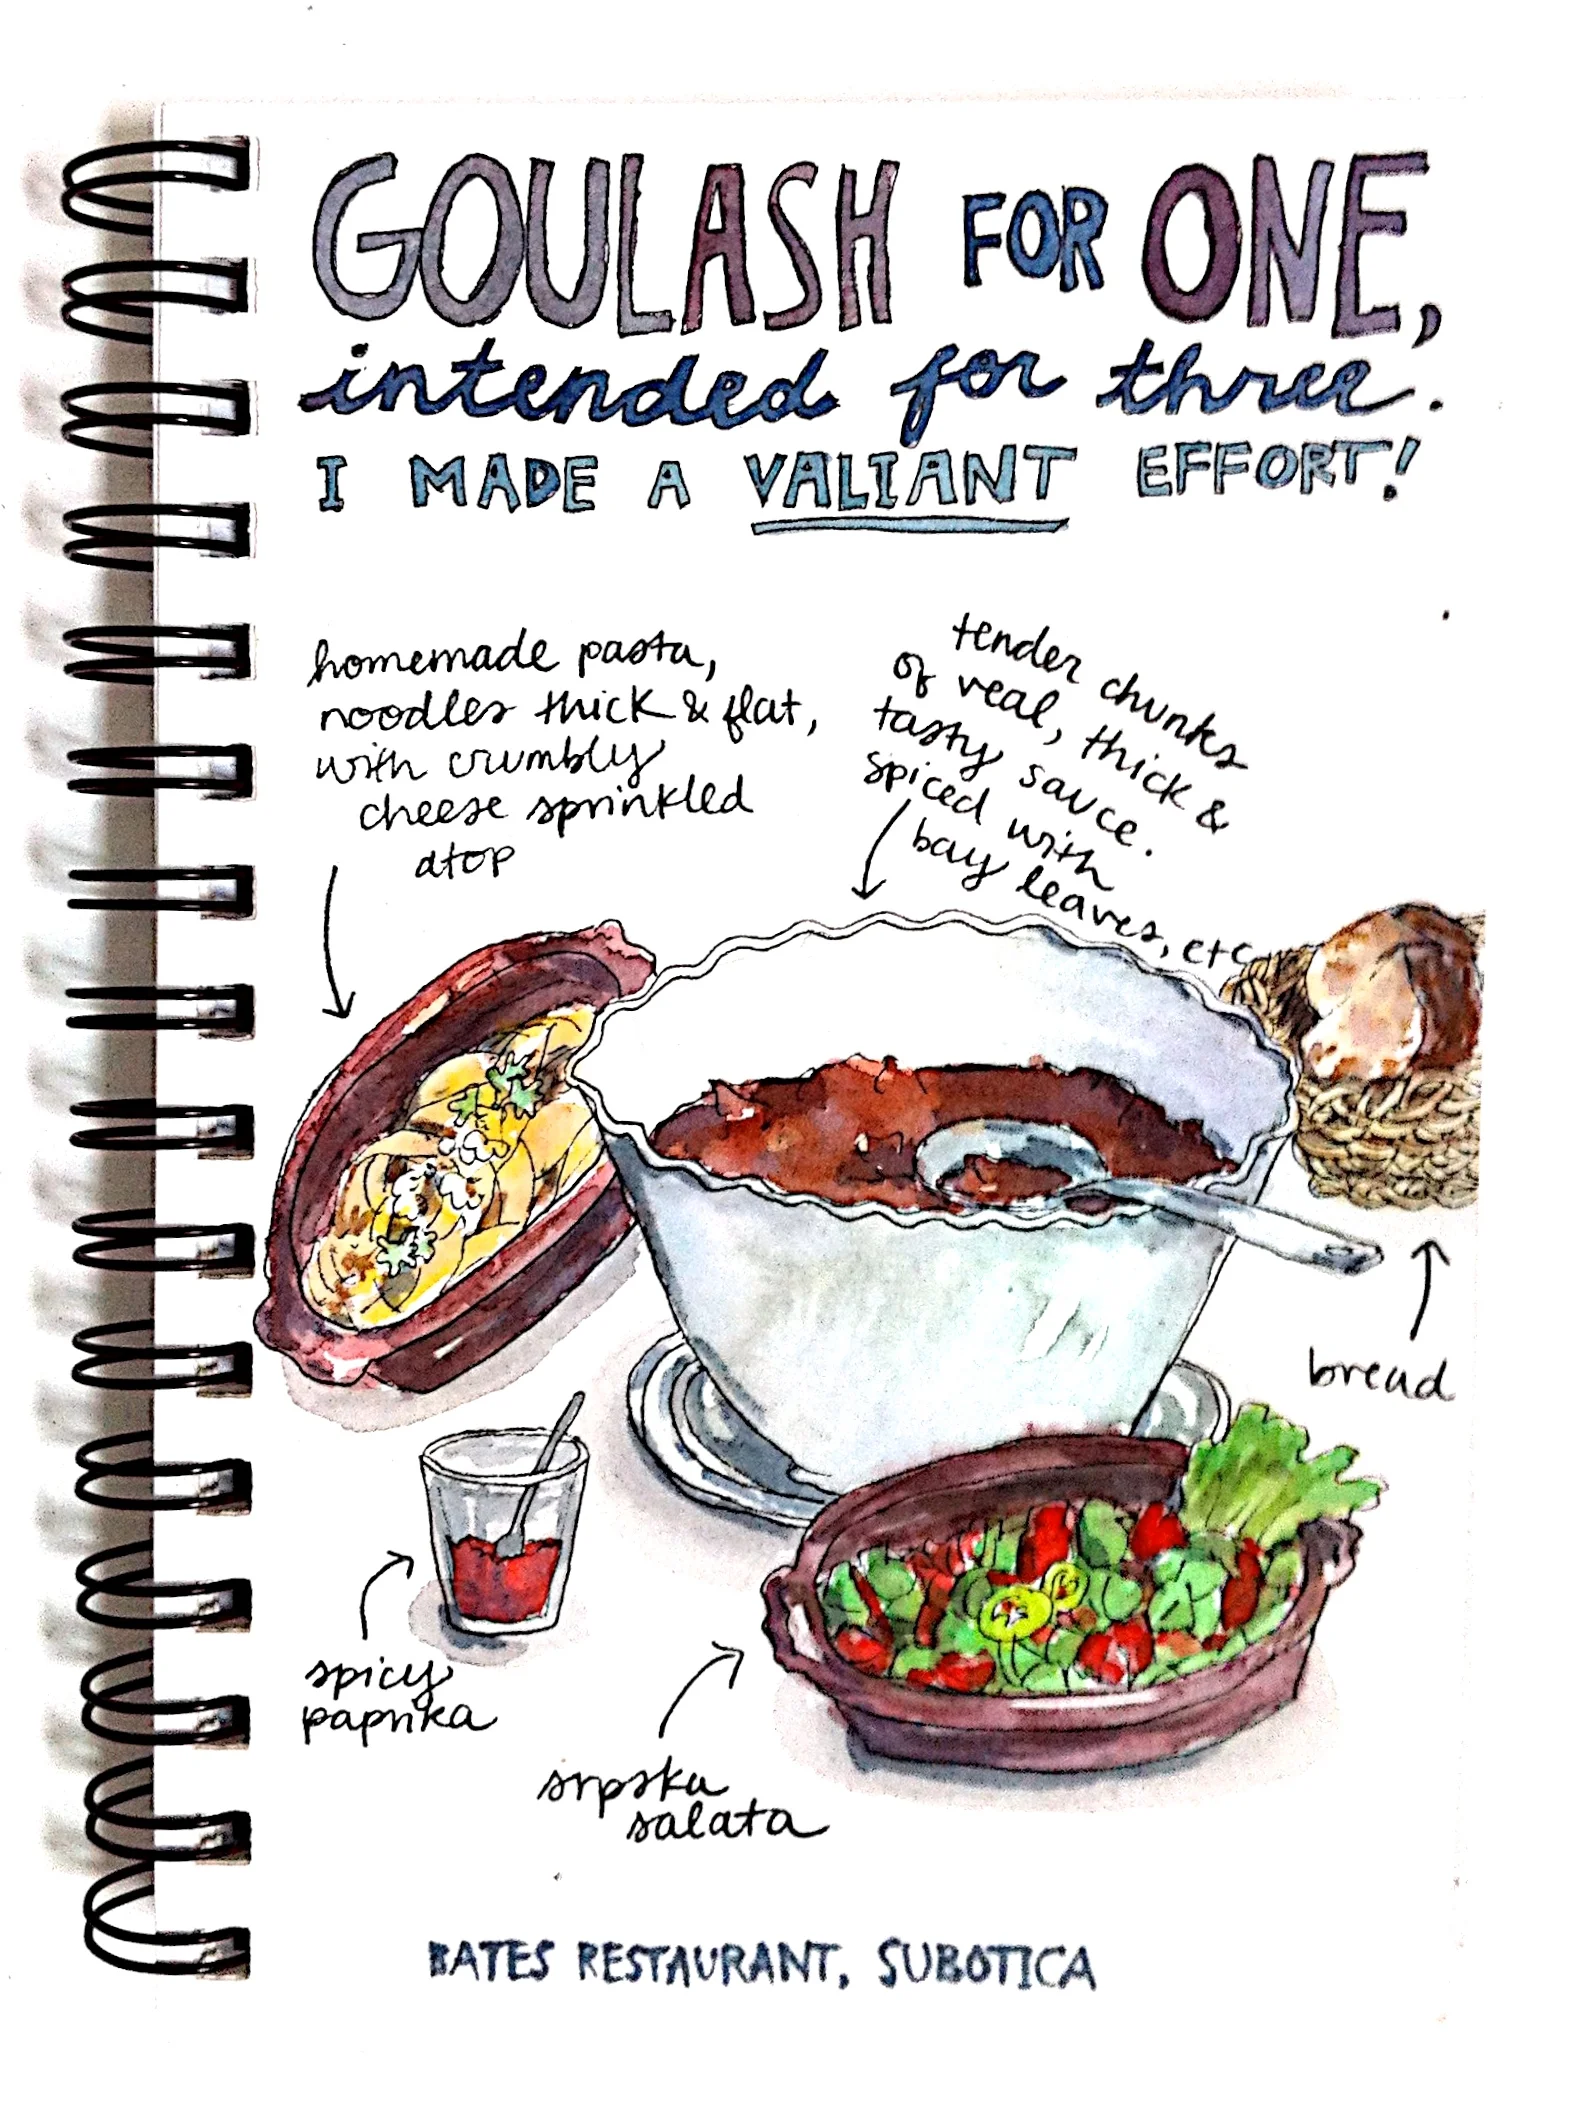 GOULASH FOR ONE,
intended for three.
I MADE A VALIANT EFFORT!
homemade pasta,
noodles thick & flat,
with crumbly
cheese sprinkled
atop
tender chunks
of veal, thick &
tasty sauce.
spiced with
bay leaves, etc
bread
spicy
paprika
srpska
salata
BATES RESTAURANT, SUBOTICA